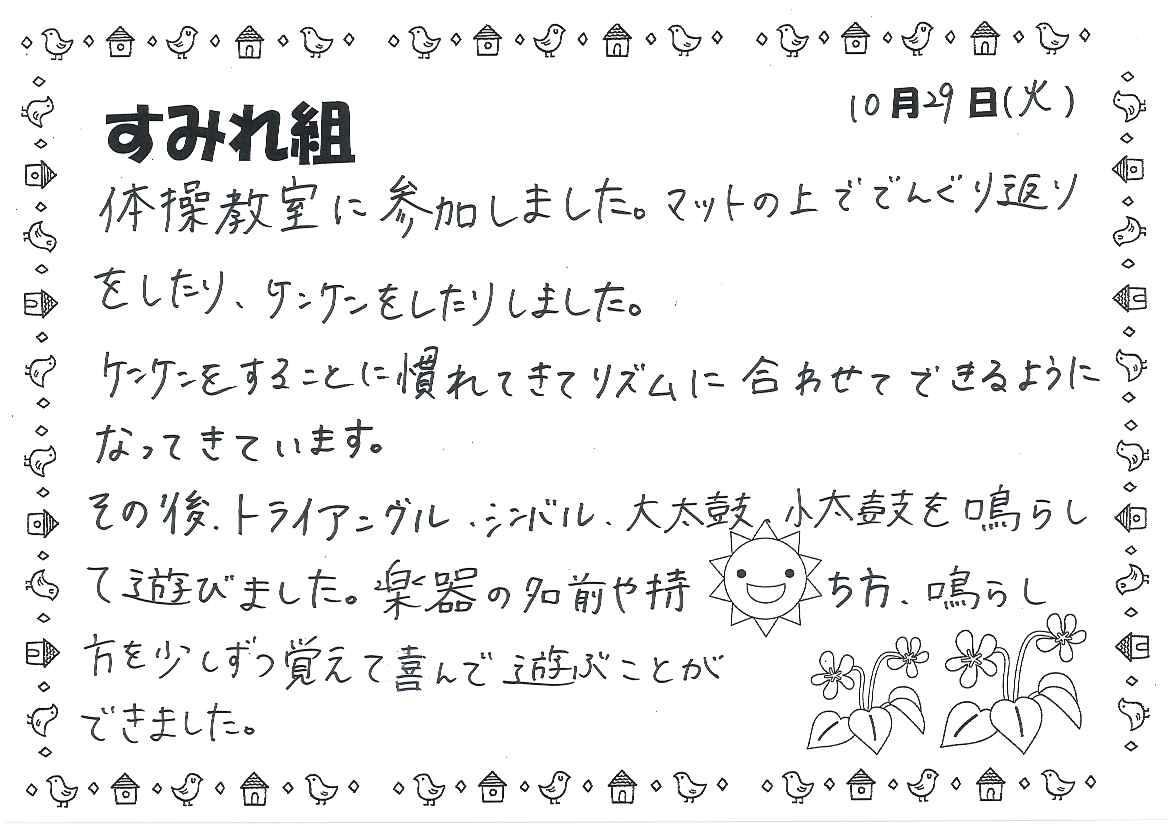 10月29日(火)
すみれ組
体操教室に参加しました。マットの上ででんぐり返り
をしたり、ケンケンをしたりしました。
ケンケンをすることに慣れてきてリズムに合わせてできるように
なってきています。
その後、トライアングル、シンバル、大太鼓、小太鼓を鳴らし
て遊びました。楽器の名前や持ち方、鳴らし
方を少しずつ覚えて喜んで遊ぶことが
できました。